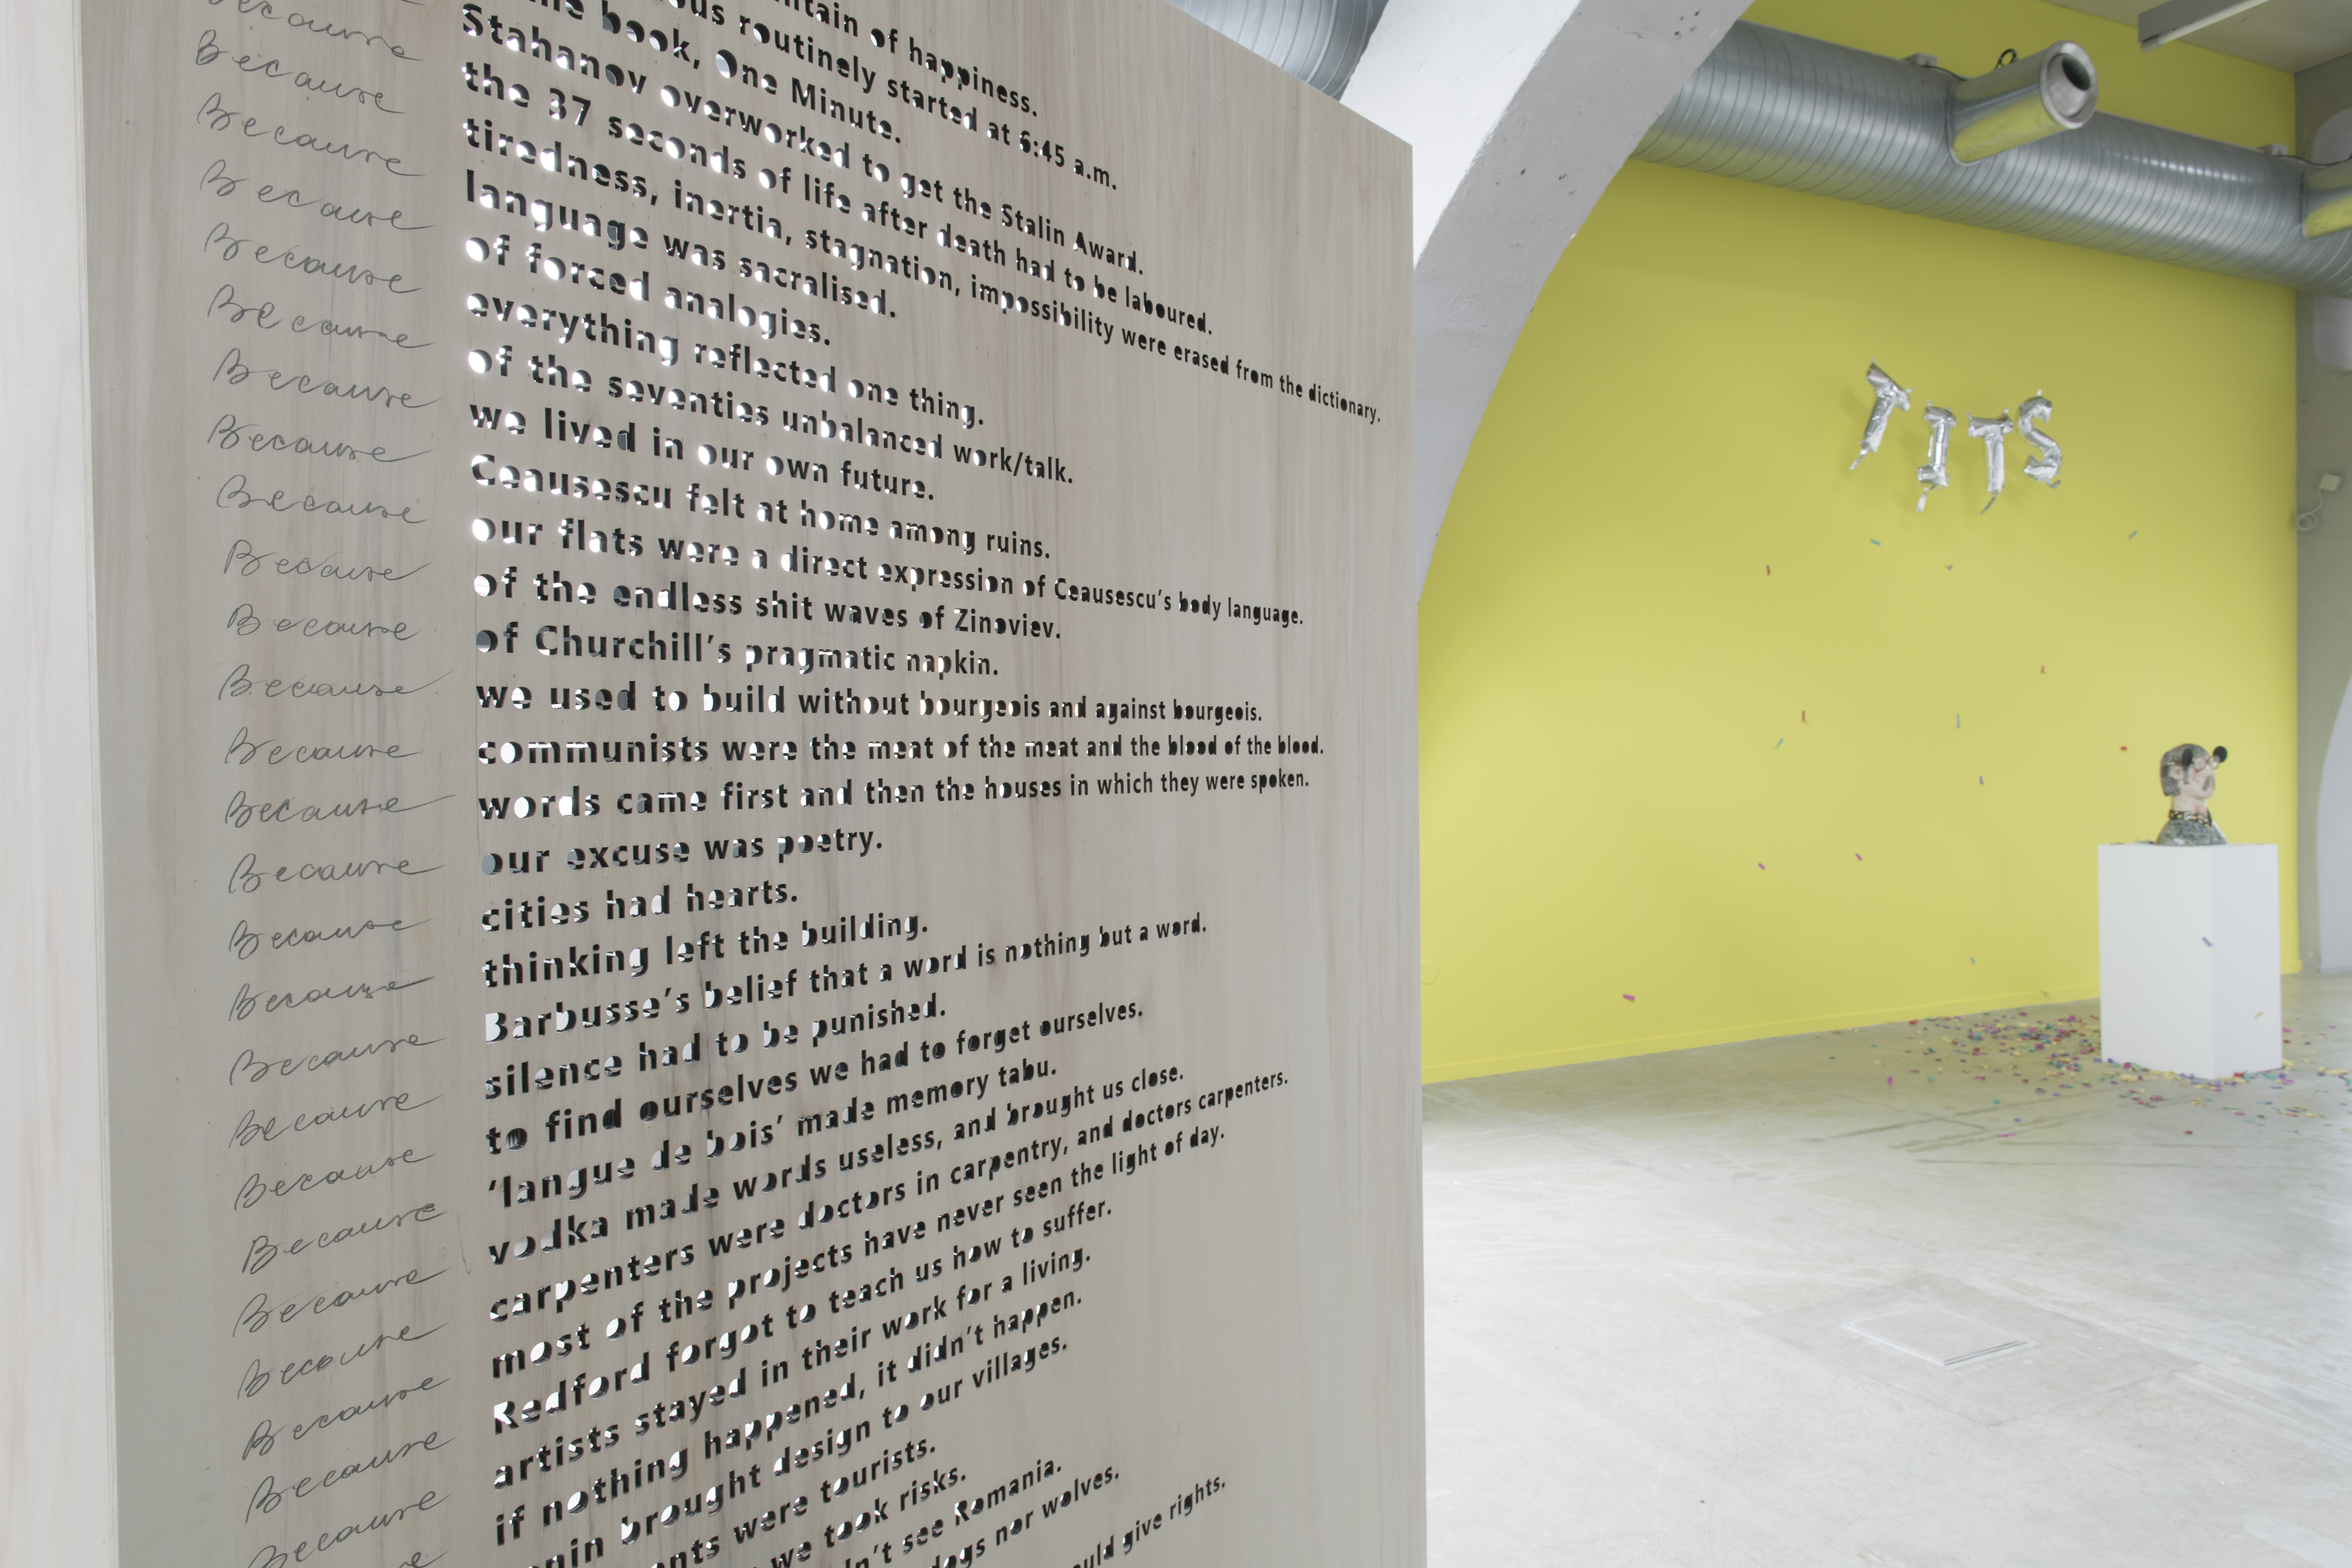 ntain of happiness.
ous routinely started at 6:45 a.m.
book, One Minute.
Because Stahanov overworked to get the Stalin Award.
Because the 37 seconds of life after death had to be laboured.
Because tiredness, inertia, stagnation, impossibility were erased from the dictionary.
Because language was sacralised.
Because of forced analogies.
Because everything reflected one thing.
Because of the seventies unbalanced work/talk.
Because we lived in our own future.
Because Ceausescu felt at home among ruins.
Because our flats were a direct expression of Ceausescu's body language.
Because of the endless shit waves of Zinoviev.
Because of Churchill's pragmatic napkin.
Because we used to build without bourgeois and against bourgeois.
Because communists were the meat of the meat and the blood of the blood.
Because words came first and then the houses in which they were spoken.
Because our excuse was poetry.
Because cities had hearts.
Because thinking left the building.
Because Barbusse's belief that a word is nothing but a word.
Because silence had to be punished.
Because to find ourselves we had to forget ourselves.
Because 'langue de bois' made memory tabu.
Because vodka made words useless, and brought us close.
Because carpenters were doctors in carpentry, and doctors carpenters.
Because most of the projects have never seen the light of day.
Because Redford forgot to teach us how to suffer.
Because artists stayed in their work for a living.
Because if nothing happened, it didn't happen.
nin brought design to our villages.
nts were tourists.
we took risks.
n't see Romania.
dogs nor wolves.
ould give rights.
TITS